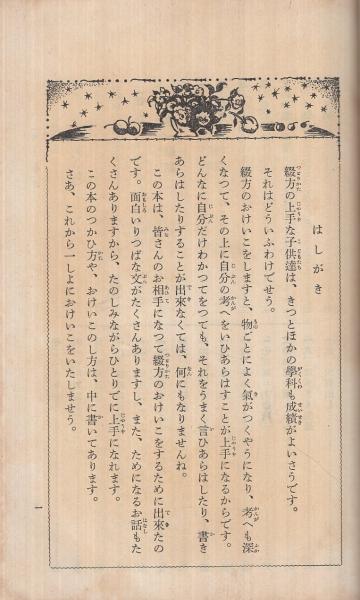 はしがき
綴方の上手な子供達は、きつとほかの學科も成績がよいさうです。
それはどういふわけでせう。
綴方のおけいこをしますと、物ごとによく氣がつくやうになり、考へも深
くなつて、その上に自分の考へをいひあらはすことが上手になるからです。
どんなに自分だけわかつてをつても、それをうまく言ひあらはしたり、書き
あらはしたりすることが出來なくては、何にもなりませんね。
この本は、皆さんのお相手になつて綴方のおけいこをするために出來たの
です。面白いりつぱな文がたくさんありますし、また、ためになるお話もた
くさんありますから、たのしみながらひとりでに上手になれます。
この本のつかひ方や、おけいこのし方は、中に書いてあります。
さあ、これから一しよにおけいこをいたしませう。
一